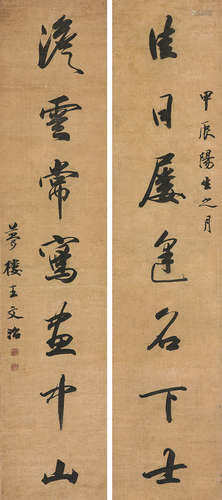 甲辰陽生之月
佳日屢逢名下士
澹雲常寫畫中山
夢樓王文治